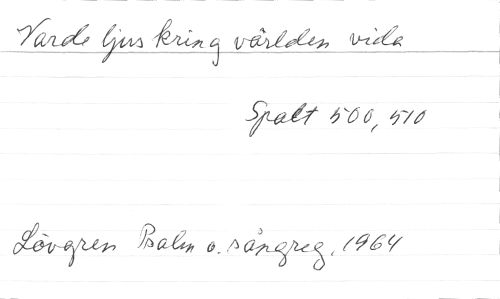 Varde ljus kring världen vida
Spalt 500, 510
Lövgren Psalm o. sångreg. 1964